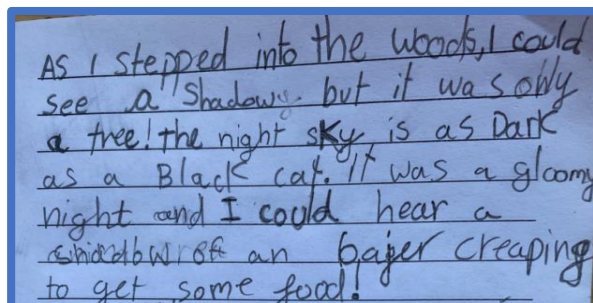 As I stepped into the woods, I could
see a shadow but it was only
a tree! the night sky is as Dark
as a Black cat. It was a gloomy
night and I could hear a
an bajer creaping
to get some food!